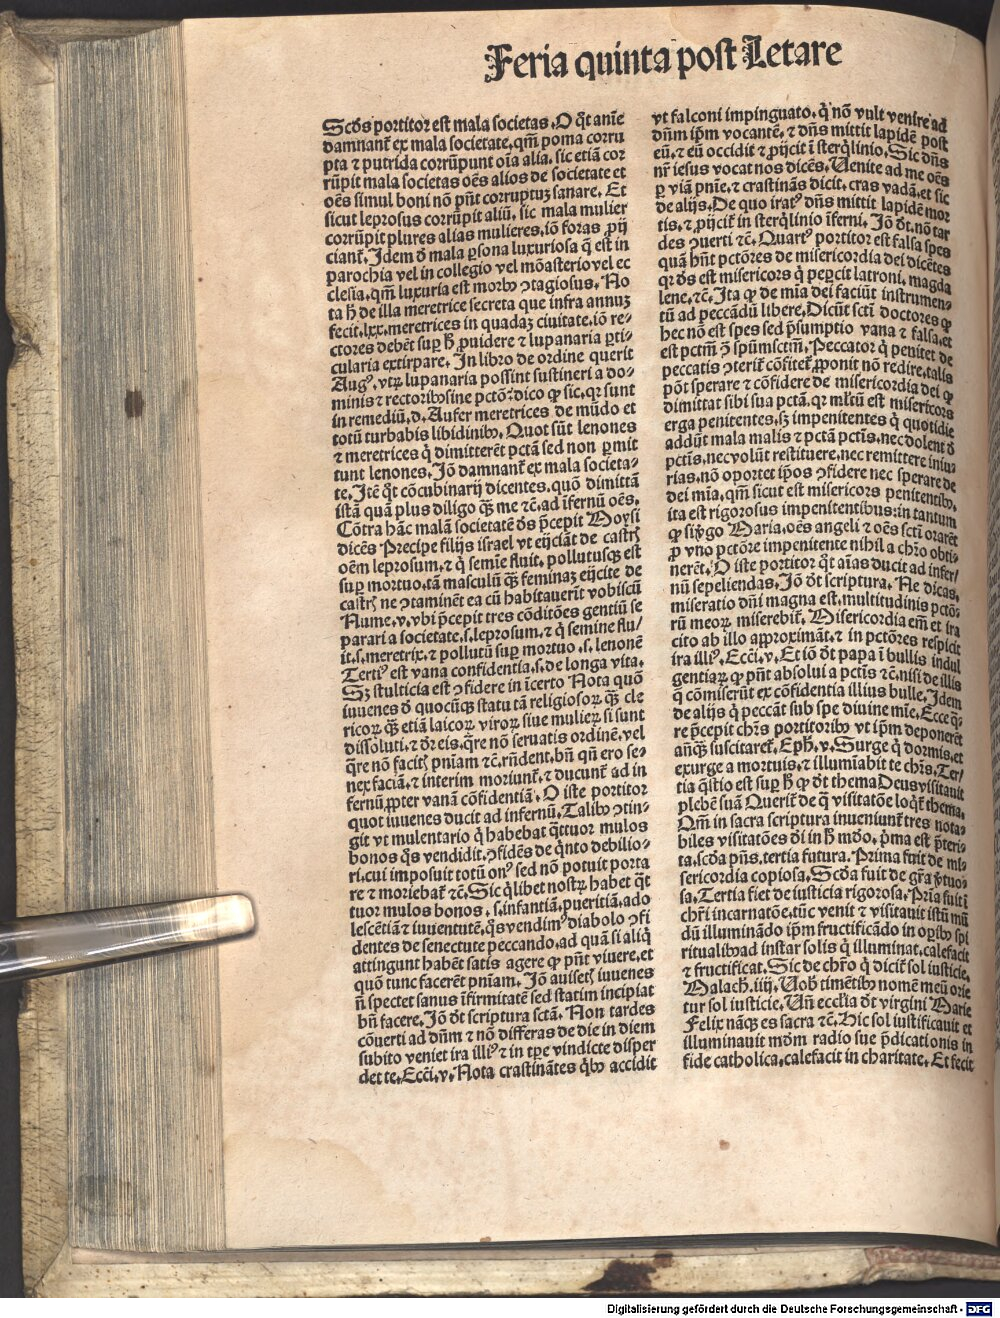 Feria quinta post Letare
Scđs portitor est mala societas. O q̄t anīe
damnant᷑ ex mala societate, qm̄ poma corru
pta ⁊ putrida corrūpunt oīa alia. sic etiā cor
rūpit mala societas oēs alios de societate et
oēs simul boni nō pn̄t corruptuꝫ sanare. Et
sicut leprosus corrūpit aliū. sic mala mulier
corrūpit plures alias mulieres. iō foras ꝓij
ciant᷑. Idem đ mala ꝑsona luxuriosa q̄ est in
parochia vel in collegio vel mōasterio vel ec
clesia. qm̄ luxuria est morbꝰ ꝯtagiosus. No
ta h̄ de illa meretrice secreta que infra annuꝫ
fecit. lxx. meretrices in quadaꝫ ciuitate. iō re⸗
ctores debēt suꝑ h̄ ꝓuidere ⁊ lupanaria ꝑti⸗
cularia extirpare. In libro de ordine querit
Augꝰ. vtꝝ lupanaria possint sustineri a do⸗
minis ⁊ rectoribꝰ sine pctō: dico ꝙ sic. qꝛ sunt
in remediū. đ. Aufer meretrices de mūdo et
totū turbabis libidinibꝰ. Quot sūt lenones
⁊ meretrices q̇ dimitterēt pctā sed non ꝑmit
tunt lenones. Iō damnant᷑ ex mala societa⸗
te. Itē q̄t cōcubinarij dicentes. quō dimittā
istā quā plus diligo qꝫ me ⁊c̄. ad īfernū oēs.
Cōtra hāc malā societatē đs p̄cepit Moysi
dicēs Precipe filijs israel vt eijciāt de castr᷑
oēm leprosum. ⁊ q̇ semīe fluit. pollutusqꝫ est
suꝑ mortuo. tā masculū qꝫ feminaꝫ eijcite de
castr᷑ ne ꝯtaminēt ea cū habitauerīt vobiscū
Nume. v. vbi p̄cepit tres cōditōes gentiū se
parari a societate. s. leprosum. ⁊ q̇ semine flu/
it. s. meretrix. ⁊ pollutū suꝑ mortuo. s. lenonē
Tertiꝰ est vana confidentia. s. de longa vita.
Sꝫ stulticia est ꝯfidere in īcerto Nota quō
iuuenes đ quocūqꝫ statu tā religiosoꝝ qꝫ cle
ricoꝝ qꝫ etiā laicoꝝ viroꝝ siue mulieꝝ si sunt
dissoluti. ⁊ đr eis. q̄re nō seruatis ordinē. vel
q̄re nō facit᷑ pn̄iam ⁊c̄. rn̄dent. bn̄ qn̄ ero se⸗
nex faciā. ⁊ interim moriunt᷑. ⁊ ducunt᷑ ad in
fernū ꝓpter vanā cōfidentiā. O iste portitor
quot iuuenes ducit ad infernū. Talibꝰ ꝯtin⸗
git vt mulentario q̇ habebat q̄ttuor mulos
bonos q̄s vendidit. ꝯfidēs de q̇nto debilio⸗
ri. cui imposuit totū onꝰ sed nō potuit porta
re ⁊ moriebat᷑ ⁊c̄. Sic q̇libet nostꝝ habet q̄t
tuor mulos bonos. s. infantiā. pueritiā. ado
lescētiā ⁊ iuuentutē. q̄s vendimꝰ diabolo ꝯfi
dentes de senectute peccando. ad quā si aliq̇
attingunt habēt satis agere ꝙ pn̄t viuere. et
quō tunc facerēt pn̄iam. Iō auiset᷑ iuuenes
n̄ spectet sanus īfirmitatē sed statim incipiat
bn̄ facere. Iō đt scriptura sctā. Non tardes
cōuerti ad dn̄m ⁊ nō differas de die in diem
subito veniet ira illiꝰ ⁊ in tꝑe vindicte disper
det te. Ecci. v. Nota crastinātes q̇bꝰ accidit
vt falconi impinguato. q̇ nō vult venire ad
dn̄m ip̄m vocantē. ⁊ dn̄s mittit lapidē post
eū. ⁊ eū occidit ⁊ ꝓijcit ī sterq̇linio. Sic dn̄s
nr̄ iesus vocat nos dicēs. Uenite ad me oēs
ꝑ viā pn̄ie. ⁊ crastinās dicit. cras vadā. et sic
de alijs. De quo iratꝰ dn̄s mittit lapidē mor
tis. ⁊ ꝓijcit᷑ in sterq̇linio īferni. Iō đt. nō tar
des ꝯuerti ⁊c̄. Quartꝰ portitor est falsa spes
quā hn̄t pctōres de misericordia dei dicētes
qꝛ đs est misericors q̇ peꝑcit latroni. magda
lene. ⁊c̄. Ita ꝙ de mīa dei faciūt instrumen⸗
tū ad peccādū libere. Dicūt sctī doctores ꝙ
hec nō est spes sed p̄sumptio vana ⁊ falsa. et
est pctm̄ ꝯ spūmsctm̄. Peccator q̇ penitet de
peccatis ꝯterit᷑ cōfitet᷑ ꝓponit nō redire. talis
pōt sperare ⁊ cōfidere de misericordia dei ꝙ
dimittat sibi sua pctā. qꝛ ml̄tū est misericors
erga penitentes. sꝫ impenitentes q̇ quotidie
addūt mala malis ⁊ pctā pctīs. nec dolent đ
pctīs. nec volūt restituere. nec remittere iniu⸗
rias. nō oportet ip̄os ꝯfidere nec sperare de
dei mīa. qm̄ sicut est misericors penitentibꝰ.
ita est rigorosus impenitentibus: in tantum
ꝙ si v̇go Maria. oēs angeli ⁊ oēs sctī orarēt
ꝓ vno pctōre impenitente nihil a chr̄o obti⸗
nerēt. O iste portitor q̄t aīas ducit ad infer/
nū sepeliendas. Iō đt scriptura. Ne dicas.
miseratio dn̄i magna est. multitudinis pctō⸗
rū meoꝝ miserebit᷑. Misericordia em̄ et ira
cito ab illo approximāt. ⁊ in pctōres respicit
ira illiꝰ. Ecci. v. Et iō đt papa ī bullis indul
gentiaꝝ ꝙ pn̄t absolui a pctīs ⁊c̄. nisi de illis
q̄ cōmiserūt ex cōfidentia illius bulle. Idem
de alijs q̇ peccāt sub spe diuine mīe. Ecce q̄⸗
re p̄cepit chr̄s portitoribꝰ vt ip̄m deponerēt
anteqꝫ suscitaret᷑. Eph. v. Surge q̇ dormis. et
exurge a mortuis. ⁊ illumīabit te chr̄s. Ter/
tia q̄stio est suꝑ h̄ ꝙ đt thema Deus visitauit
plebē suā Querit᷑ de q̄ visitatōe loq̇t᷑ thema.
Qm̄ in sacra scriptura inueniunt᷑ tres nota⸗
biles visitatōes di in h̄ mđo. p̄ma est p̄teri⸗
ta. scđa pn̄s. tertia futura. Prima fuit de mi⸗
sericordia copiosa. Scđa fuit de gr̄a v̇tuo⸗
sa. Tertia fiet de iusticia rigorosa. Prīa fuit ī
chr̄i incarnatōe. tūc venit ⁊ visitauit istū mū
dū illuminādo ip̄m fructificādo in oꝑibꝰ spi
ritualibꝰ ad instar solis q̇ illuminat. calefacit
⁊ fructificat. Sic de chr̄o q̇ dicit᷑ sol iusticie.
Malach. iiij. Uob timētibꝰ nomē meū orie
tur sol iusticie. Un̄ eccl̄ia đt virgini Marie
Felix nāqꝫ es sacra ⁊c̄. Hic sol iustificauit et
illuminauit mđm radio sue p̄dicationis in
fide catholica. calefacit in charitate. Et fecit
Digitalisierung gefördert durch die Deutsche Forschungsgemeinschaft - DFG